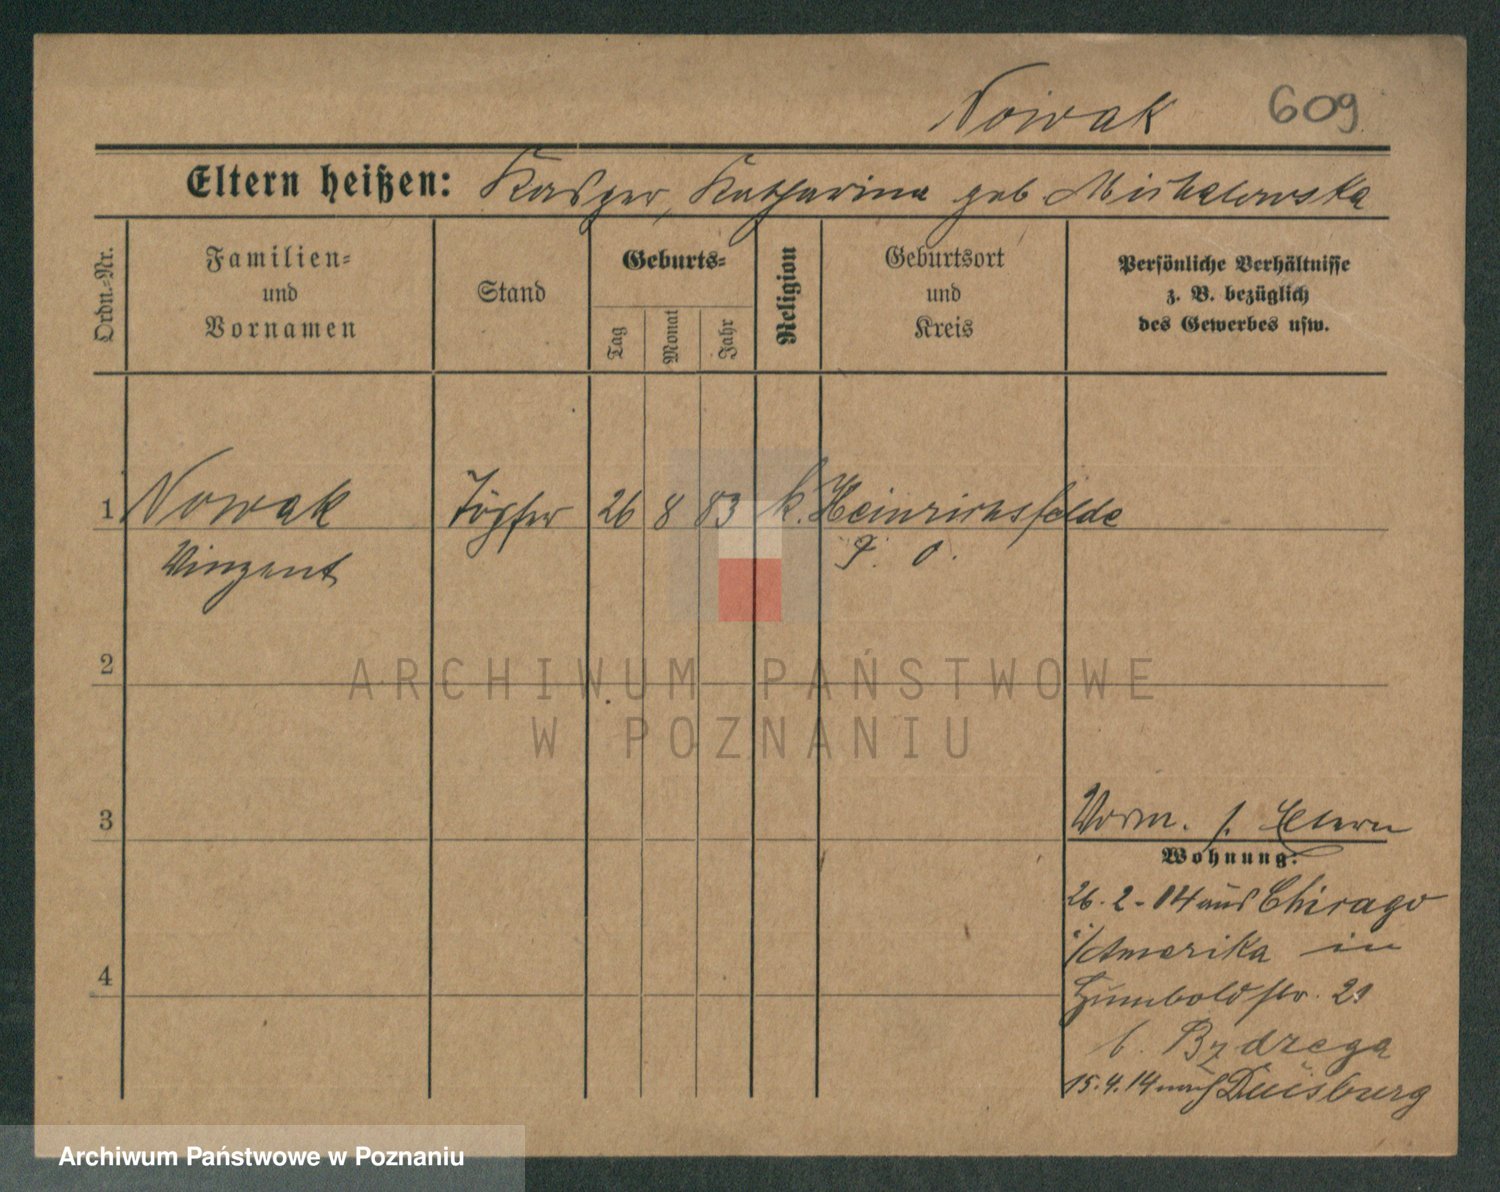 Nowak 609
Eltern heißen: Kasper, Katharina geb Michalowska
Ordn.-Nr.
Familien-
und
Vornamen
Stand
Geburts-
Tag
Monat
Jahr
Religion
Geburtsort
und
Kreis
Persönliche Verhältnisse
z. B. bezüglich
des Gewerbes usw.
1 Nowak Töpfer 26 8 83 k. Heinrichsfelde
Vinzent P. O.
2
ARCHIWUM PAŃSTWOWE
W POZNANIU
3
Vorm. s. Eltern
Wohnung:
26. 2. 14 aus Chicago
i/Amerika in
Humboldstr. 21
b. Bzdrega
15. 4. 14 nach Duisburg
4
Archiwum Państwowe w Poznaniu